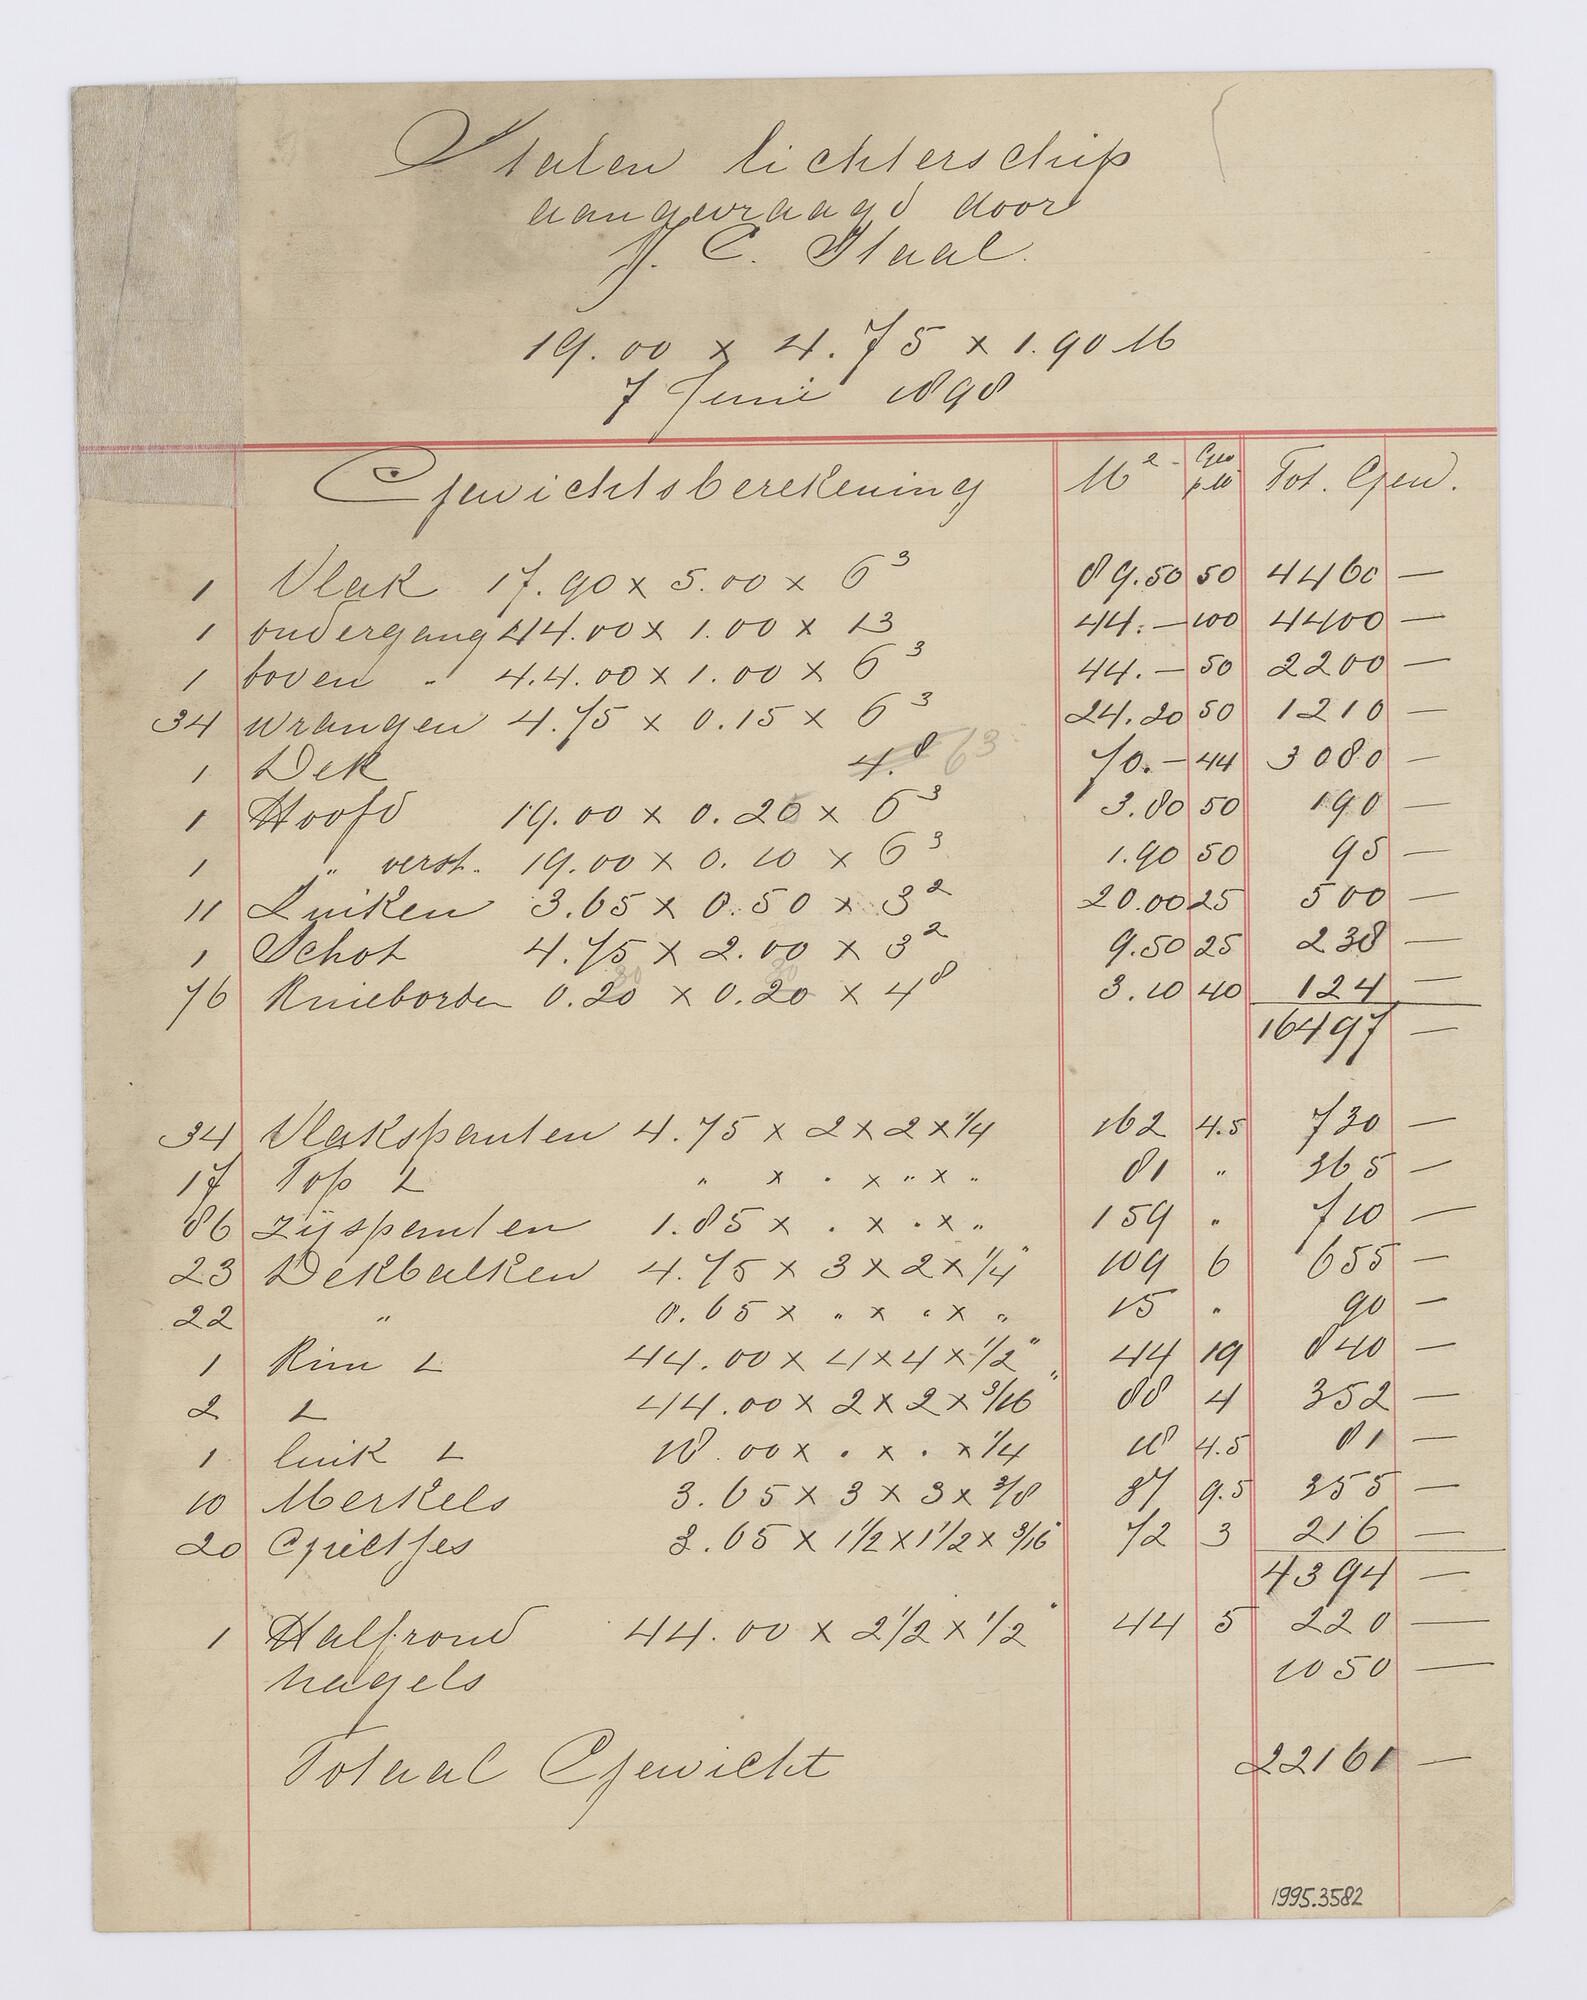 Stalen lichterschip
aangevraagd door
J. C. Staal.
19.00 x 4.75 x 1.90 M
7 Juni 1898
Gewichtsberekening M² Gew p M Tot. Gew.
1 Vlak 17.90 x 5.00 x 6³ 89.50 50 4460 —
1 ondergang 44.00 x 1.00 x 13 44.— 100 4400 —
1 boven " 44.00 x 1.00 x 6³ 44.— 50 2200 —
34 wrangen 4.75 x 0.15 x 6³ 24.20 50 1210 —
1 Dek 4.8 63 70.— 44 3080 —
1 Hoofd 19.00 x 0.20 x 6³ 3.80 50 190 —
1 " verst. 19.00 x 0.10 x 6³ 1.90 50 95 —
11 Luiken 3.65 x 0.50 x 3² 20.00 25 500 —
1 Schot 4.75 x 2.00 x 3² 9.50 25 238 —
76 Knieborden 0.20 x 0.20 x 4⁸ 3.10 40 124 —
16497 —
34 Vlakspanten 4.75 x 2 x 2 x 1/4 162 4.5 730 —
17 Top L " x . x " x " 81 " 365 —
86 zijspanten 1.85 x . x . x " 159 " 710 —
23 Dekbalken 4.75 x 3 x 2 x 1/4" 109 6 655 —
22 " 0.65 x " x " x " 15 " 90 —
1 Kim L 44.00 x 4 x 4 x 1/2" 44 19 840 —
2 L 44.00 x 2 x 2 x 3/16" 88 4 352 —
1 luik L 18.00 x . x . x 1/4 18 4.5 81 —
10 Merkels 3.65 x 3 x 3 x 3/8 37 9.5 355 —
20 Grietjes 3.65 x 1 1/2 x 1 1/2 x 3/16" 72 3 216 —
4394 —
1 Halfrond 44.00 x 2 1/2 x 1/2" 44 5 220 —
nagels 1050 —
Totaal Gewicht 22161 —
1995.3582